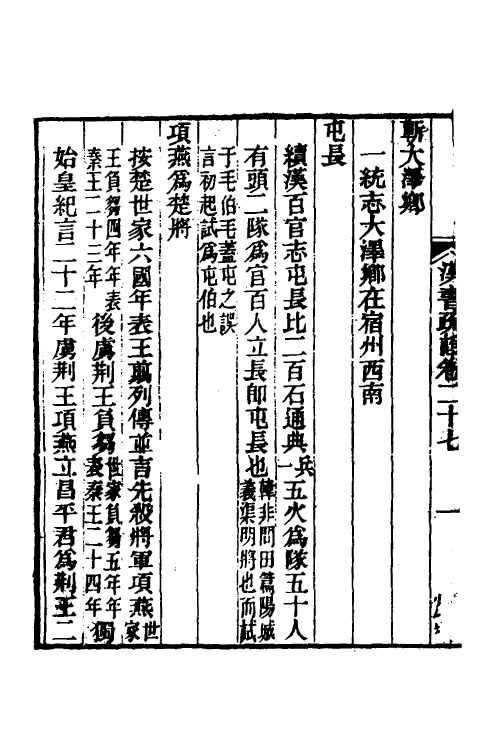 漢書疏證卷二十七
一
蘄大澤鄉
一統志大澤鄉在宿州西南
屯長
續漢百官志屯長比二百石通典兵一五火爲隊五十人
有頭二隊爲官百人立長師屯長也韓非問田篇陽城義渠明將也而試
于毛伯毛蓋屯之誤言初起試爲屯伯也
項燕爲楚將
按楚世家六國年表王翦列傳並言先殺將軍項燕世家
王負芻四年年表秦王二十三年後虜荆王負芻世家負芻五年年表秦王二十四年獨
始皇紀言二十二年虜荆王項燕立昌平君爲荆王二